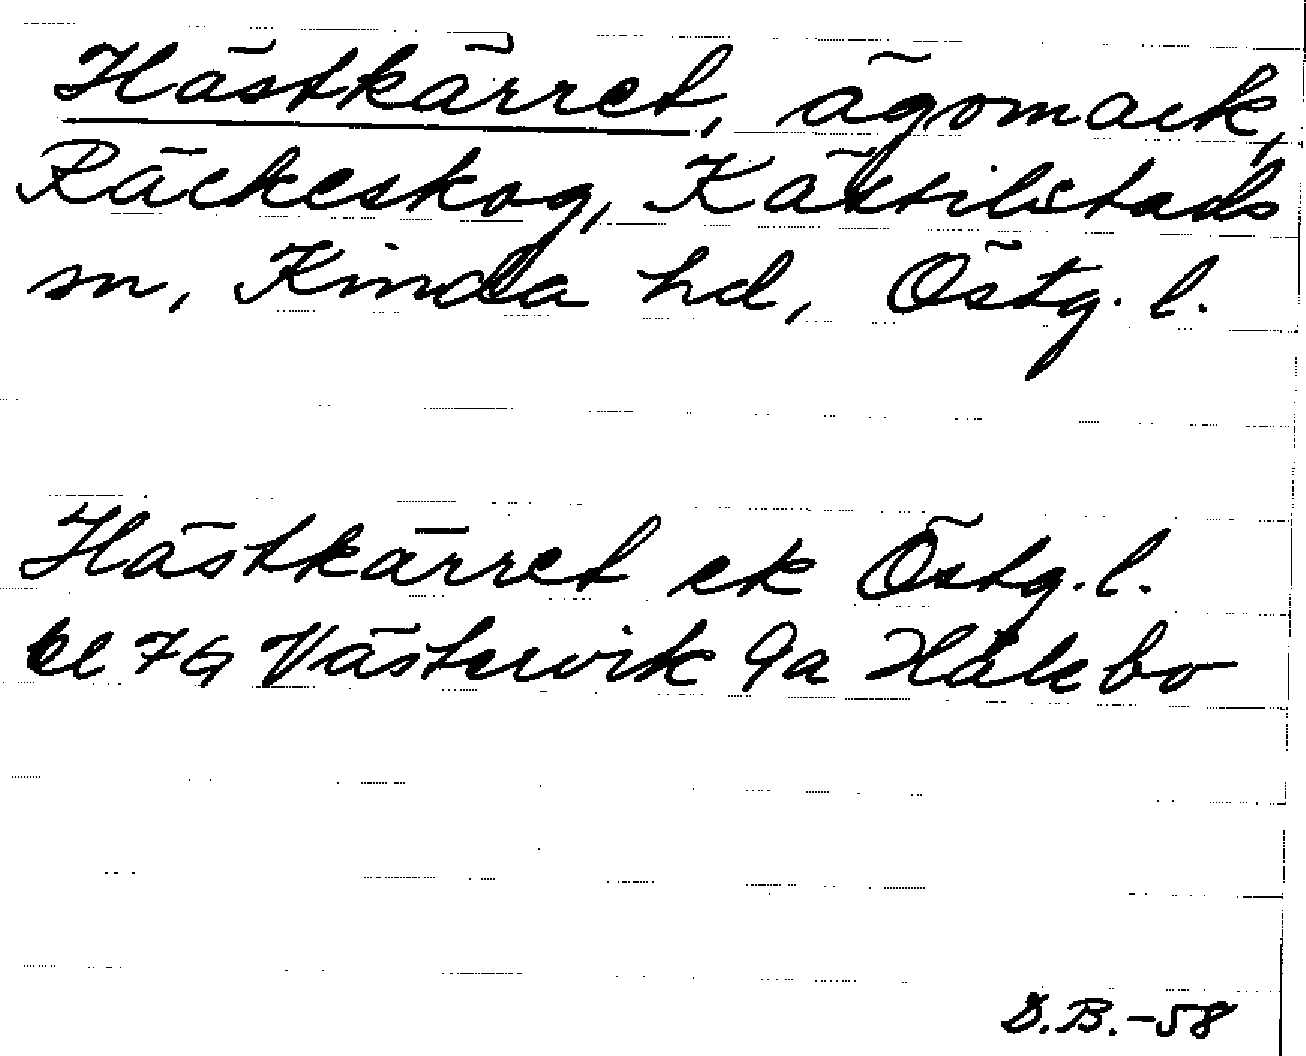 Hästkärret, ägomark,
Räckeskog, Kättilstads
sn, Kinda hd, Östg. l.
Hästkärret ek Östg. l.
bl 7G Västervik 9a Hålebo
D.B.-58